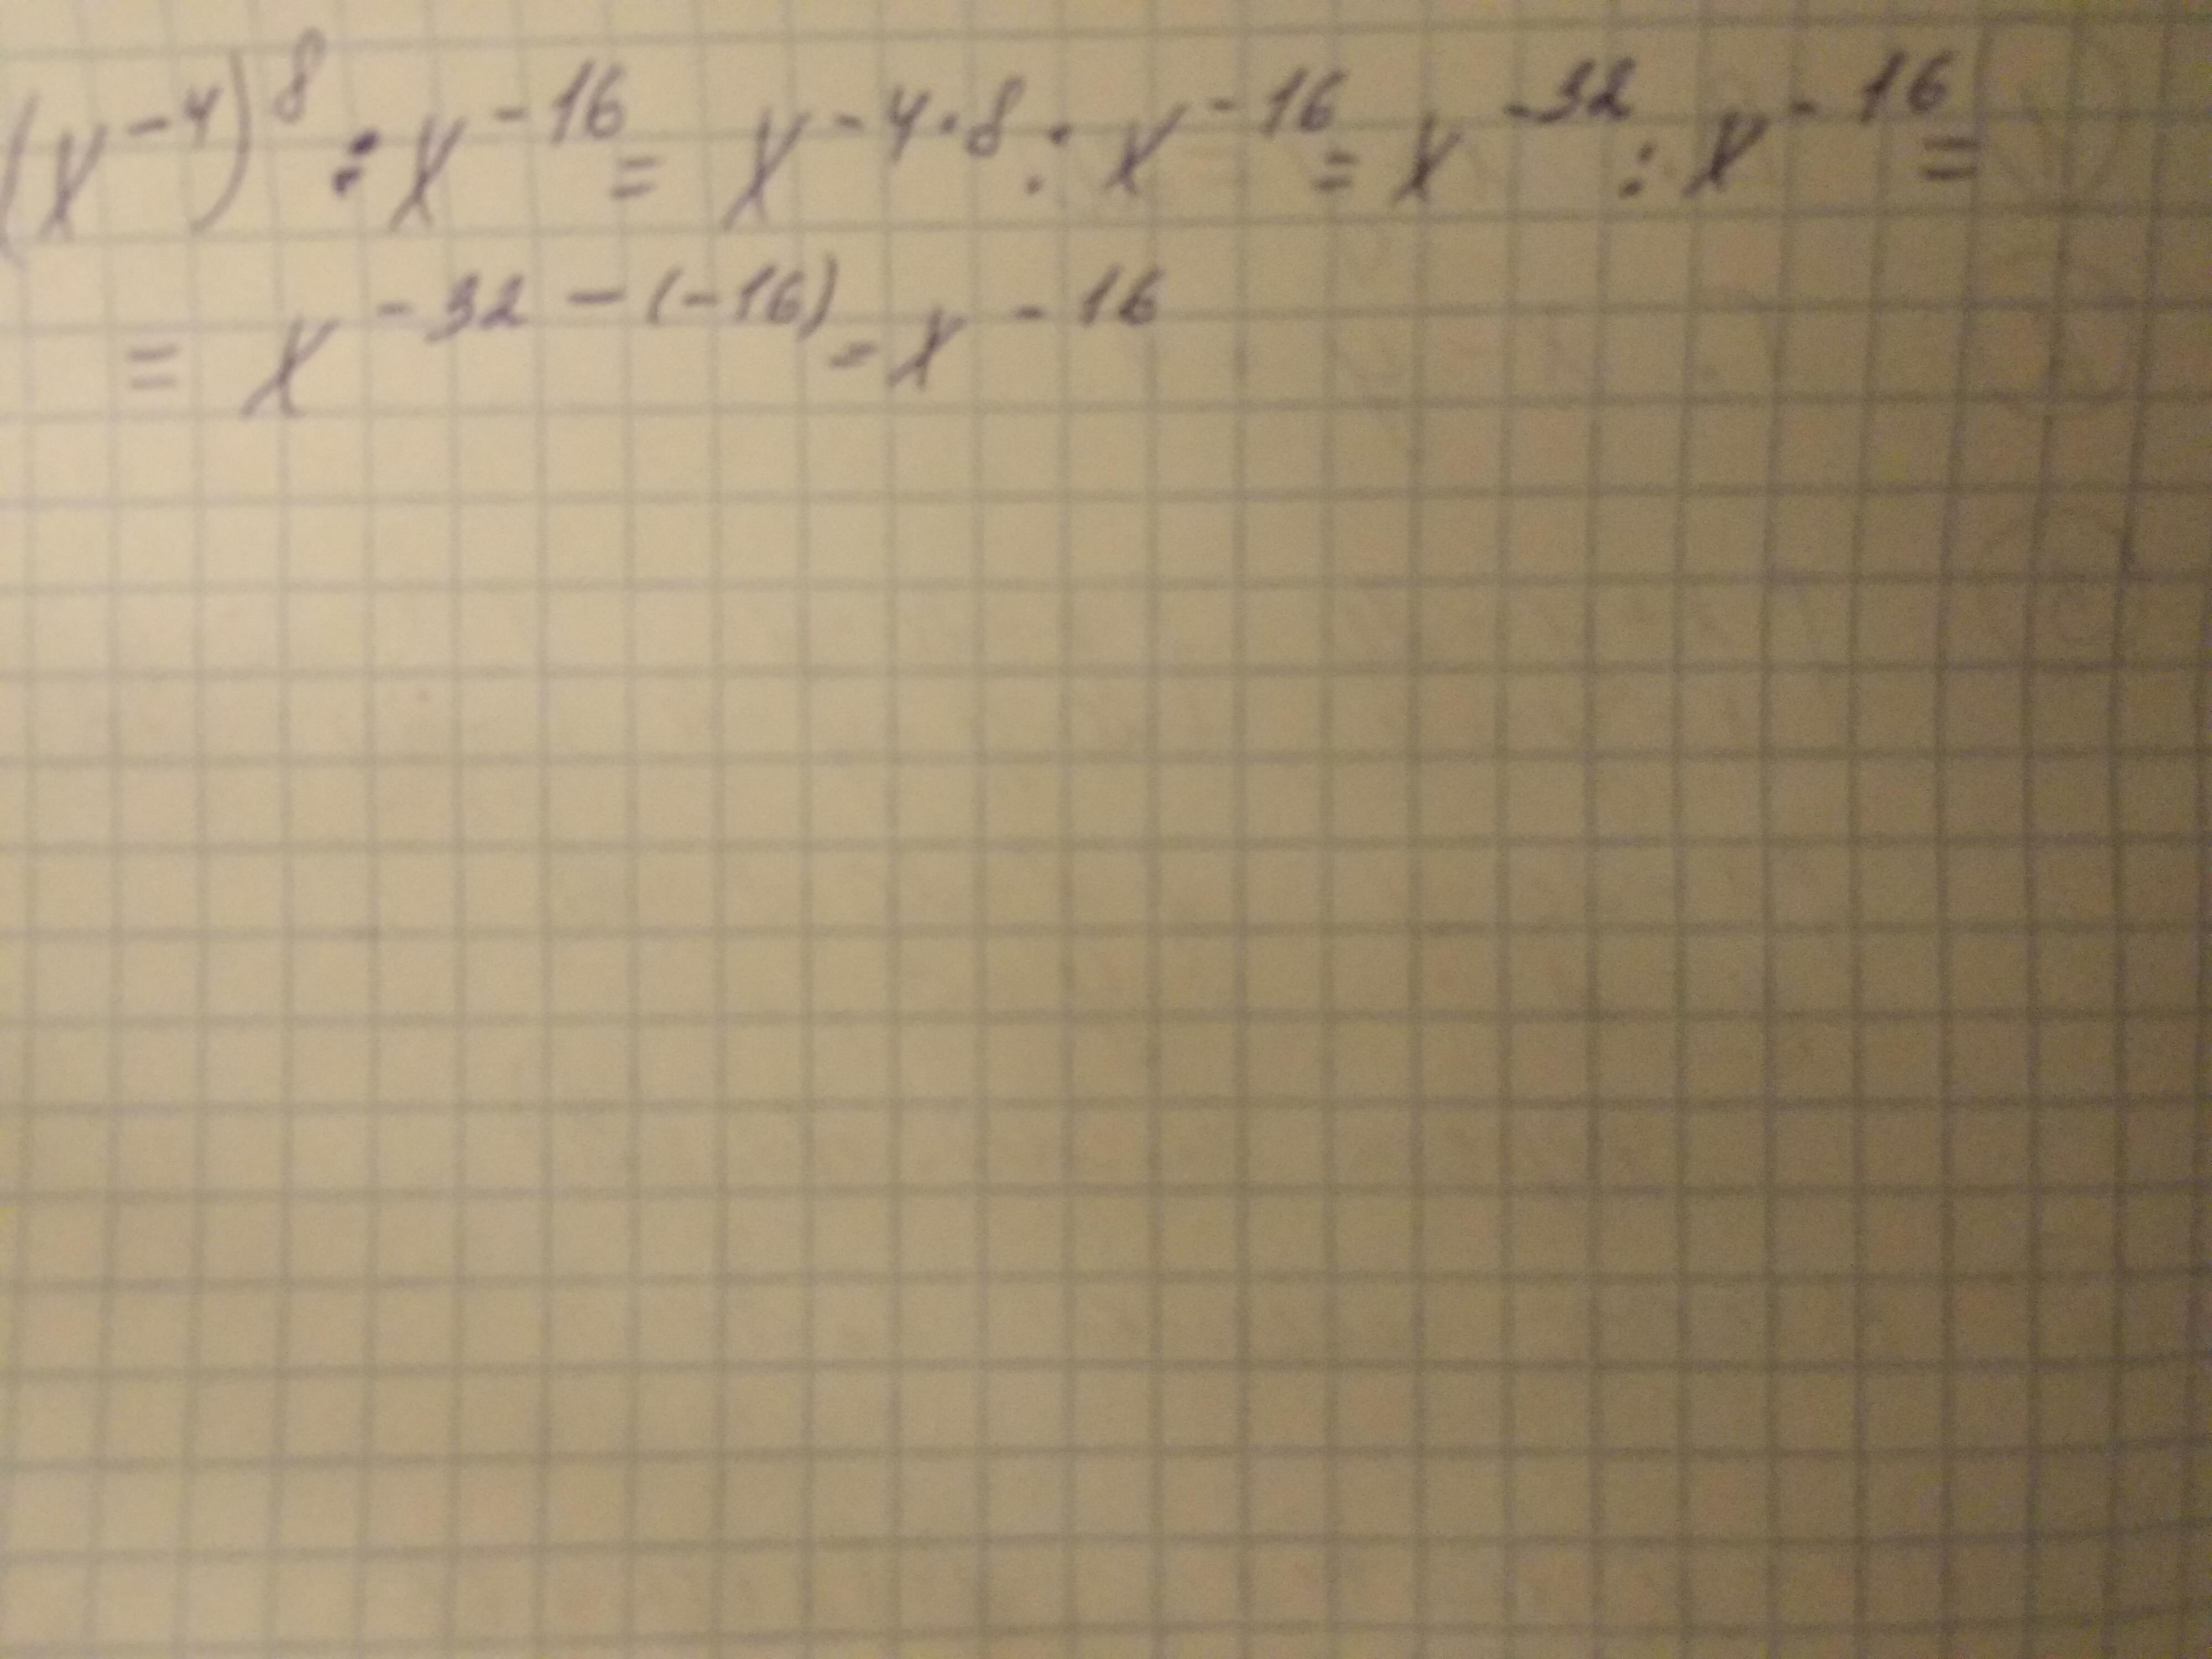 (x⁻⁴)⁸ : x⁻¹⁶ = x⁻⁴·⁸ : x⁻¹⁶ = x⁻³² : x⁻¹⁶ =
= x⁻³²⁻⁽⁻¹⁶⁾ = x⁻¹⁶